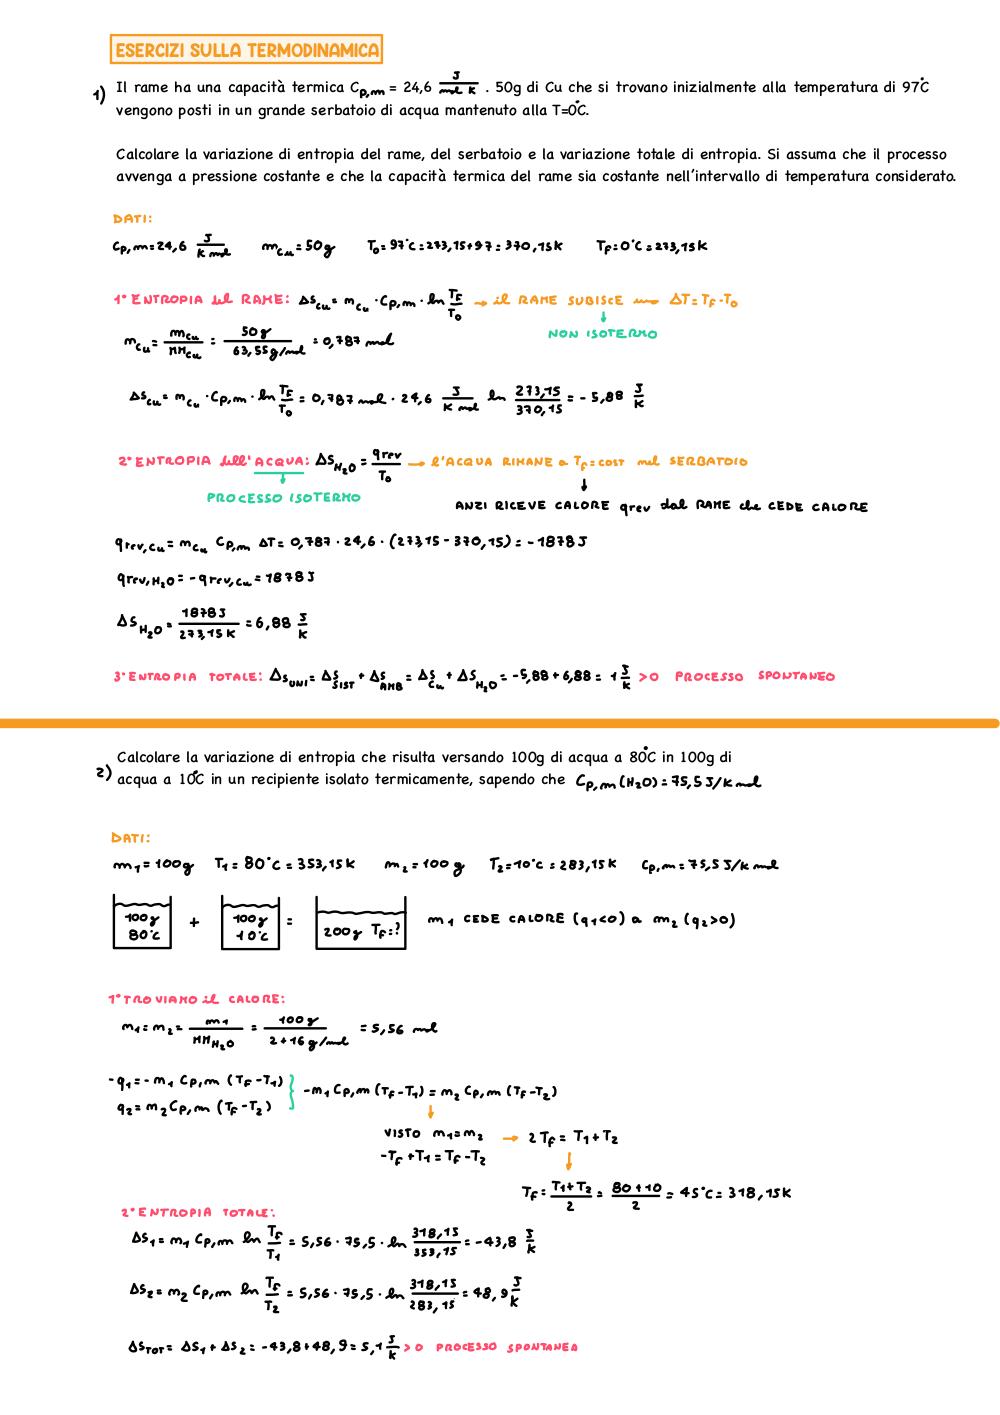 ESERCIZI SULLA TERMODINAMICA
1) Il rame ha una capacità termica Cp,m = 24,6 J/mol K . 50g di Cu che si trovano inizialmente alla temperatura di 97°C
vengono posti in un grande serbatoio di acqua mantenuto alla T=0°C.
Calcolare la variazione di entropia del rame, del serbatoio e la variazione totale di entropia. Si assuma che il processo
avvenga a pressione costante e che la capacità termica del rame sia costante nell'intervallo di temperatura considerato.
DATI:
Cp,m=24,6 J/K mol mCu=50g T0=97°C=273,15+97=370,15K TF=0°C=273,15K
1° ENTROPIA del RAME: ΔSCu= mCu · Cp,m · ln TF/T0 → il RAME SUBISCE uno ΔT=TF-T0
↓
NON ISOTERMO
mCu= mCu/MMCu = 50g/63,55g/mol = 0,787 mol
ΔSCu= mCu · Cp,m · ln TF/T0 = 0,787 mol · 24,6 J/K mol ln 273,15/370,15 = -5,88 J/K
2° ENTROPIA dell'ACQUA: ΔSH2O = qrev/T0 → l'ACQUA RIMANE a TF=cost nel SERBATOIO
↓ ↓
PROCESSO ISOTERMO
ANZI RICEVE CALORE qrev dal RAME che CEDE CALORE
qrev,Cu= mCu Cp,m ΔT= 0,787 · 24,6 · (273,15 - 370,15) = -1878J
qrev,H2O= -qrev,Cu= 1878J
ΔSH2O = 1878J/273,15K = 6,88 J/K
3° ENTROPIA TOTALE: ΔSUNI= ΔSSIST + ΔSAMB = ΔSCu + ΔSH2O = -5,88+6,88 = 1 J/K >0 PROCESSO SPONTANEO
2) Calcolare la variazione di entropia che risulta versando 100g di acqua a 80°C in 100g di
acqua a 10°C in un recipiente isolato termicamente, sapendo che Cp,m(H2O)=75,5J/K mol
DATI:
m1=100g T1=80°C=353,15K m2=100g T2=10°C=283,15K Cp,m=75,5J/K mol
100g 80°C + 100g 10°C = 200g TF=? m1 CEDE CALORE (q1<0) a m2 (q2>0)
1° TROVIAMO il CALORE:
m1=m2= m1/MMH2O = 100g/2+16g/mol = 5,56 mol
-q1=-m1 Cp,m (TF-T1)
q2=m2Cp,m (TF-T2) } -m1 Cp,m (TF-T1) = m2 Cp,m (TF-T2)
↓
VISTO m1=m2 → 2TF= T1+T2
-TF+T1=TF-T2 ↓
TF= T1+T2/2 = 80+10/2 = 45°C=318,15K
2° ENTROPIA TOTALE:
ΔS1=m1 Cp,m ln TF/T1 = 5,56 · 75,5 · ln 318,15/353,15 = -43,8 J/K
ΔS2=m2 Cp,m ln TF/T2 = 5,56 · 75,5 · ln 318,15/283,15 = 48,9 J/K
ΔSTOT= ΔS1+ΔS2= -43,8+48,9=5,1 J/K >0 PROCESSO SPONTANEO